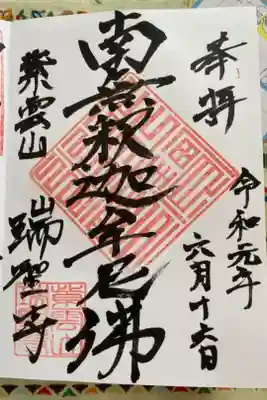 奉拝
令和元年
六月十六日
南無釈迦牟尼佛
紫雲山
瑞聖寺